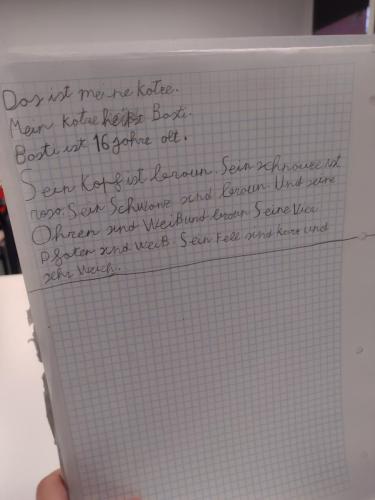 Das ist meine Kotze.
Mein Kotze heißt Basti.
Basti ist 16 Jahre alt.
Sein Kopf ist braun. Sein schnauze ist
rosa. Sein Schwanz sind braun. Und seine
Ohren sind Weiß und braun Seine Vier
Pfoten sind weiß. Sein Fell sind kurz und
sehr Weich.